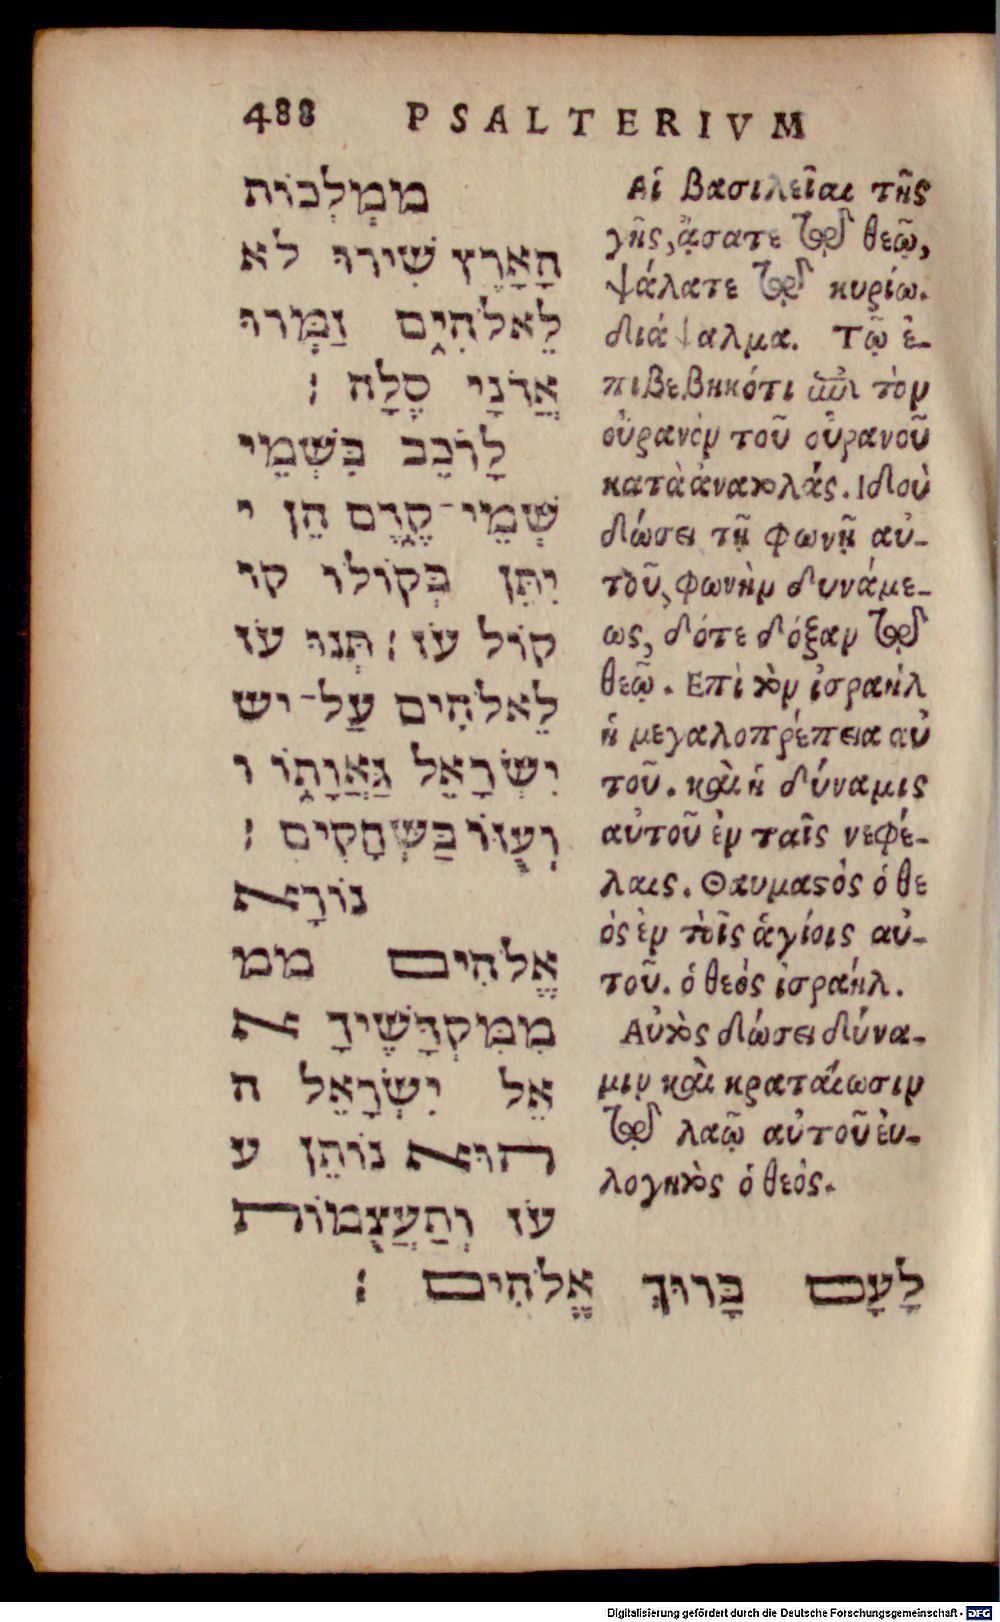 488 PSALTERIVM
מַמְלְכוֹת
הָאָרֶץ שִׁירוּ לא
לֵאלֹהִים זַמְּרוּ
אֲדֹנָי סֶלָה ׃
לָרוֹכֵב בִּשְׁמֵי
שְׁמֵי־קֶדֶם הֵן י
יִתֵּן בְּקוֹלוֹ קו
קוֹל עֹז ׃ תְּנוּ עז
לֵאלֹהִים עַל־יש
יִשְׂרָאֵל גַּאֲוָתוֹ ו
וְעֻזּוֹ בַּשְּׁחָקִים ׃
נוֹרָא
אֱלֹהִים ממ
מִמִּקְדָּשֶׁיךָ א
אֵל יִשְׂרָאֵל ה
הוּא נוֹתֵן ע
עֹז וְתַעֲצֻמוֹת
לָעָם בָּרוּךְ אֱלֹהִים ׃
Αἱ βασιλεῖαι τῆς
γῆς, ᾄσατε τῷ θεῷ,
ψάλατε τῷ κυρίω.
διάψαλμα. Τῷ ἐ-
πιβεβηκότι ἐπὶ τὸν
οὐρανὸν τοῦ οὐρανοῦ
κατὰ ἀνατολάς. Ιδοὺ
δώσει τῇ φωνῇ αὐ-
τοῦ, φωνὴν δυνάμε-
ως, δότε δόξαν τῷ
θεῷ. Επὶ τὸν ἰσραήλ
ἡ μεγαλοπρέπεια αὐ
τοῦ. καὶ ἡ δύναμις
αὐτοῦ ἐν ταῖς νεφέ-
λαις. Θαυμαϛὸς ὁ θε
ὸς ἐν τοῖς ἁγίοις αὐ-
τοῦ. ὁ θεὸς ἰσραήλ.
Αὐτὸς δώσει δύνα-
μιν καὶ κραταίωσιν
τῷ λαῷ αὐτοῦ ἐυ-
λογητὸς ὁ θεὸς.
Digitalisierung gefördert durch die Deutsche Forschungsgemeinschaft - DFG